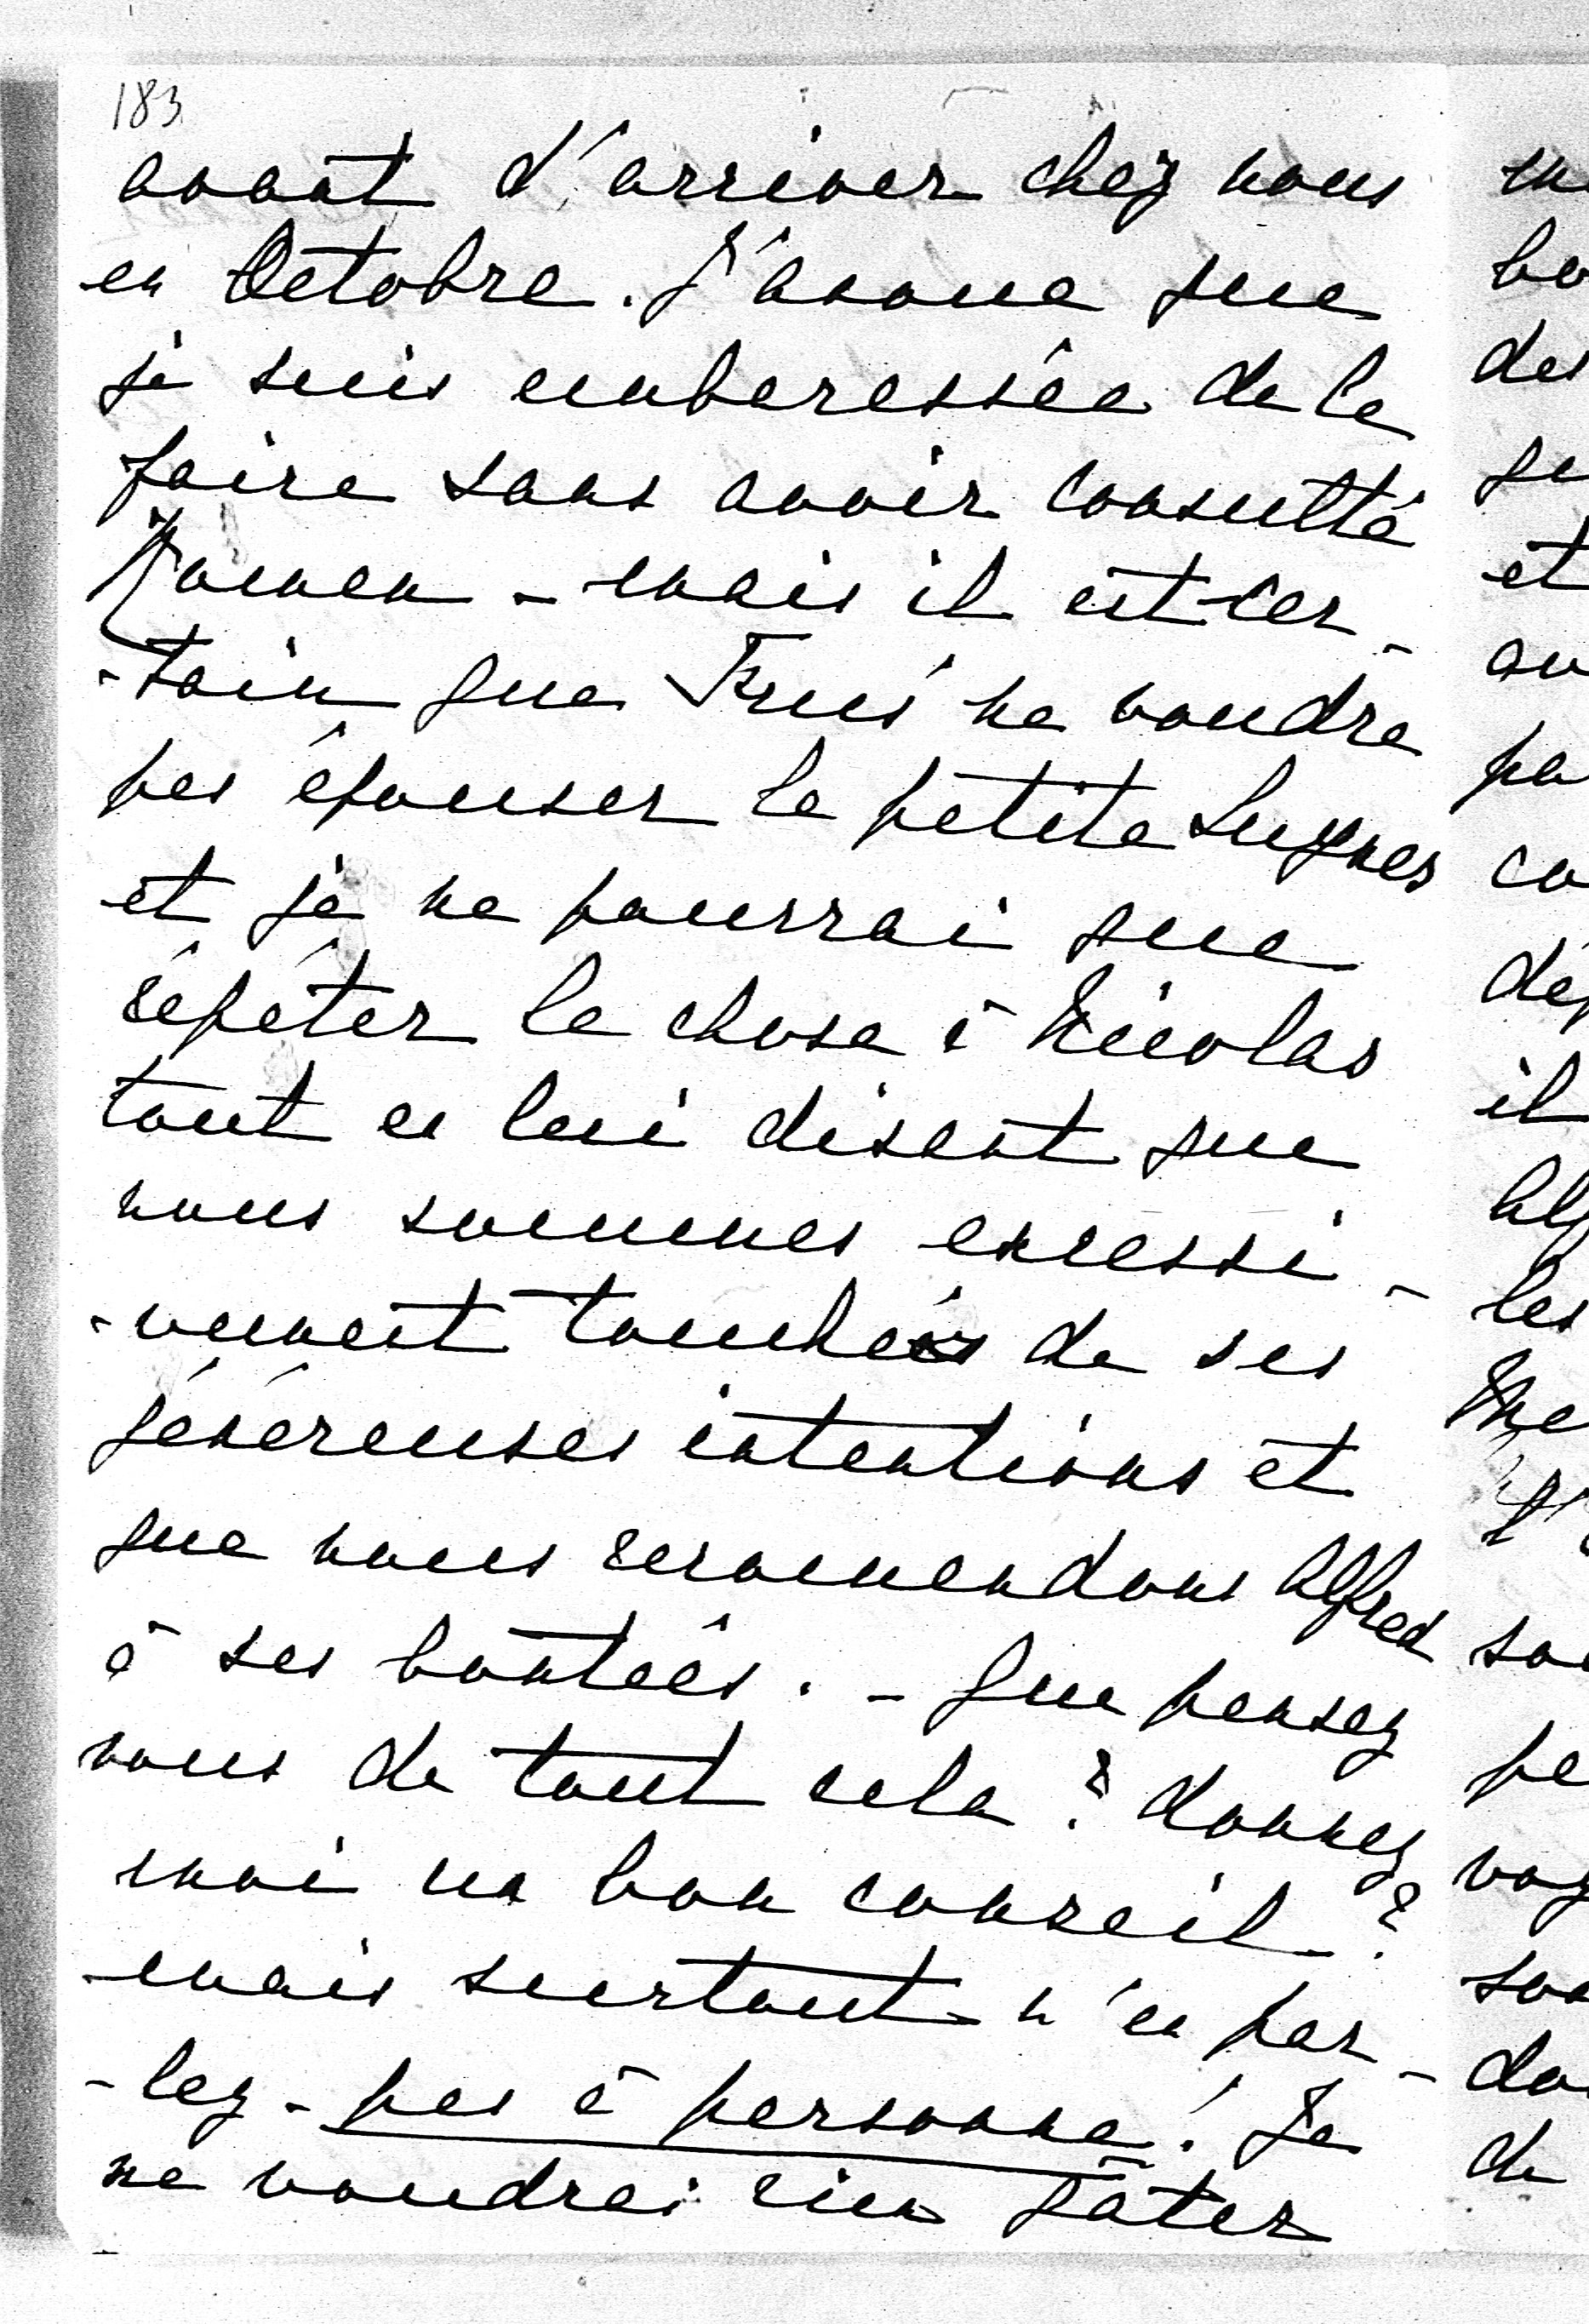 183
avant d'arriver chez nous
en Octobre. J'avoue que
je suis embaressée de le
faire sans avoir consulté
Maman - mais il est cer-
-tain que ne voudra
pas épouser la petite Luynes
et je ne pourrai que
répéter la chose à Nicolas
tout en lui disant que
nous sommes excessi-
-vement touchés de ses
généreuses intentions et
que nous recomendons Alfred
à ses bontées. - Que pensez
vous de tout cela ? donnez
moi un bon conseil ?
mais surtout n'en par-
-lez - pas à personne ! Je
ne voudrai rien gâter